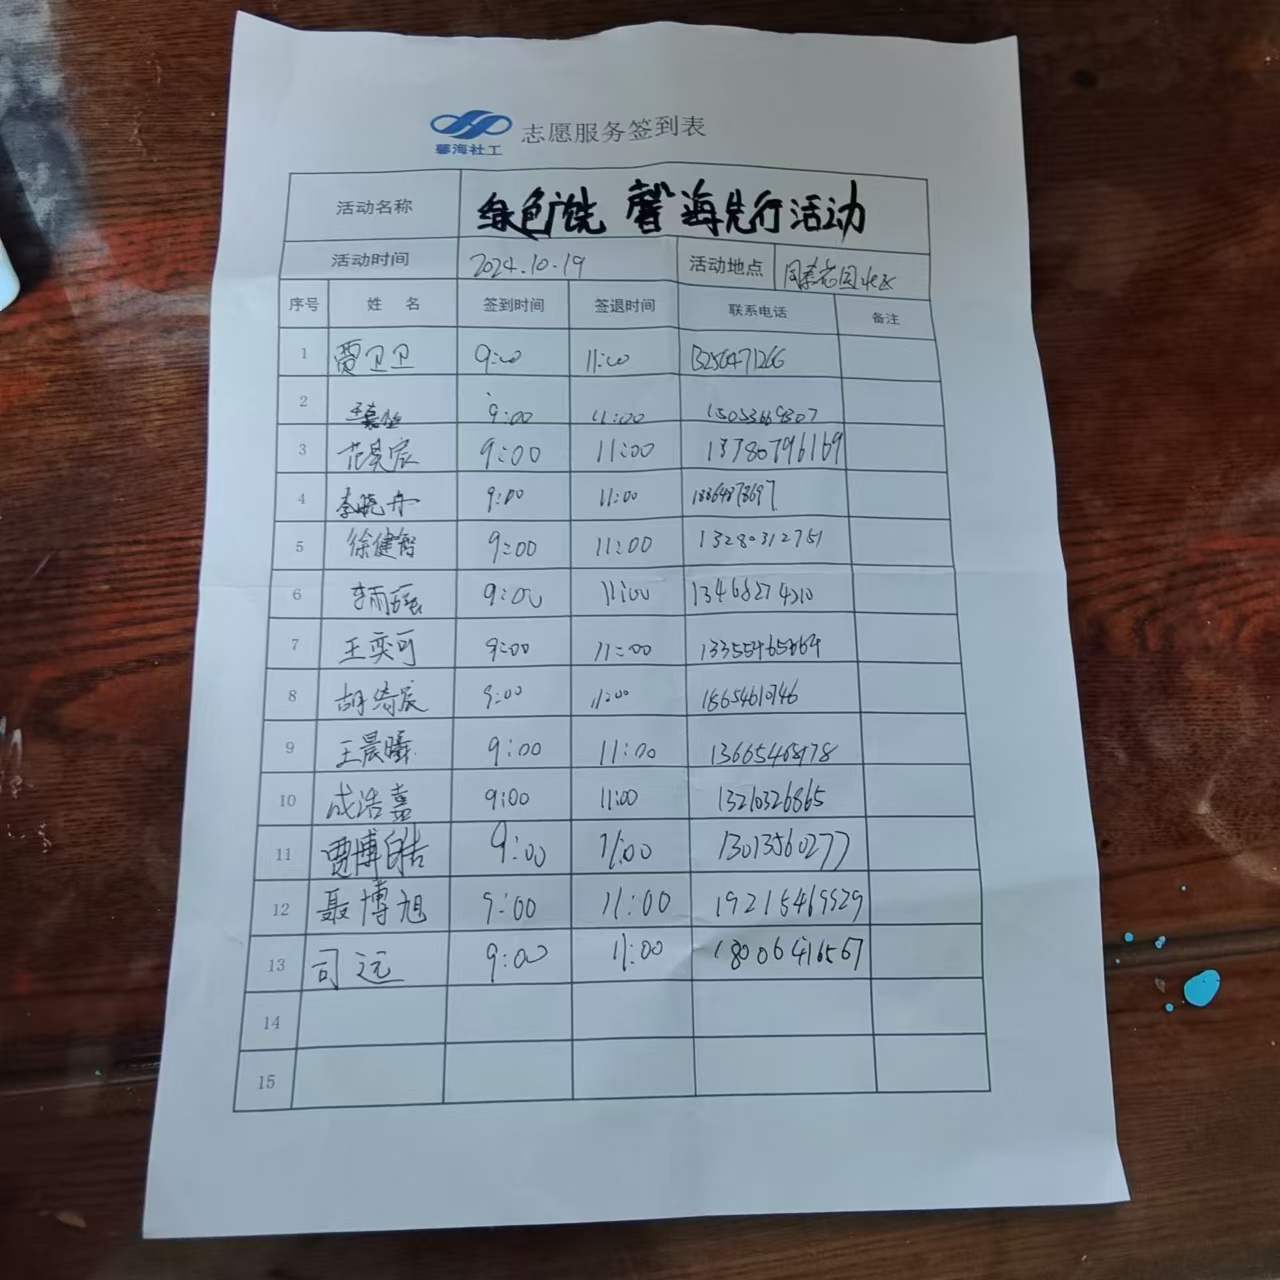 馨海社工 志愿服务签到表
活动名称 绿色广饶 馨海先行活动
活动时间 2024.10.19 活动地点 同泰花园北区
序号 姓 名 签到时间 签退时间 联系电话 备注
1 贾卫卫 9:00 11:00 13256471266
2 9:00 11:00 15053669307
3 范昊宸 9:00 11:00 13780796169
4 李晓丹 9:00 11:00
5 徐健智 9:00 11:00 13280312751
6 李雨瑶 9:00 11:00
7 王奕可 9:00 11:00
8 胡绮宸 9:00 11:00
9 王晨曦 9:00 11:00
10 成浩嘉 9:00 11:00 1321326865
11 贾博皓 9:00 11:00 13013560277
12 聂博旭 9:00 11:00 19215469529
13 司远 9:00 11:00 18006416567
14
15